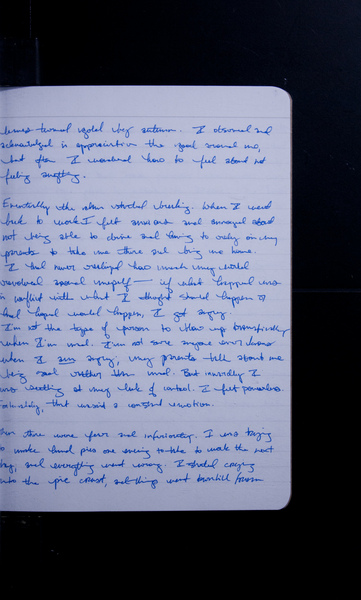 turned gold by autumn. I observed and
acknowledged in appreciation the good around me,
but often I wondered how to feel about not
feeling anything.
Eventually the calm started breaking. When I went
back to work I felt anxious and annoyed about
not being able to drive and having to rely on my
parents to take me there and bring me home.
I had never realized how much my world
revolved around myself — if what happened was
in conflict with what I thought should happen or
had hoped would happen, I got angry.
I'm not the type of person to blow up dramatically
when I'm mad. I'm not sure anyone ever knows
when I am angry, my parents tell about me
being sad rather than mad. But inwardly I
was seething at my lack of control. I felt powerless.
that wasn't a constant emotion.
there were fear and inferiority. I was trying
to make hand pies one evening to take to work the next
day, and everything went wrong. I started crying
into the pie crust, and things went downhill from